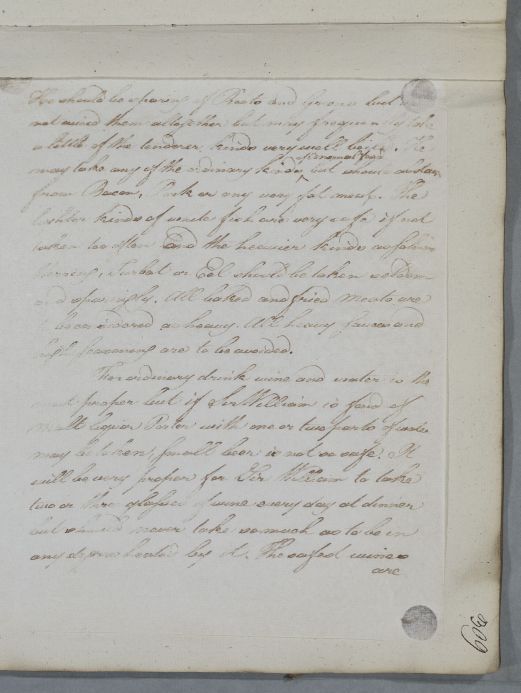 He should be sparing of Roots and Greens but
not avoid them altogether but may frequently take
a little of the tenderer kinds very well boiled. He
of animal food
may take any of the ordinary kinds but should abstain
from Bacon, Pork or any very fat meat. The
lighter kinds of white fish are very safe if not
taken too often and the heavier kinds as Salmon
herring, Turbot or Eel should be taken seldom
and sparingly. All baked and fried Meats are
to be considered as heavy. All heavy sauces and
high seasoning are to be avoided.
For ordinary drink wine and water is the
most proper but if Sir William is fond of
Malt liquor Porter with one or two parts of water
may be taken, small beer is not so safe. It
will be very proper for Sir William to take
two or three glasses of wine every day at dinner
but should never take so much as to be in
any degree heated by it. The safest wines
are
609